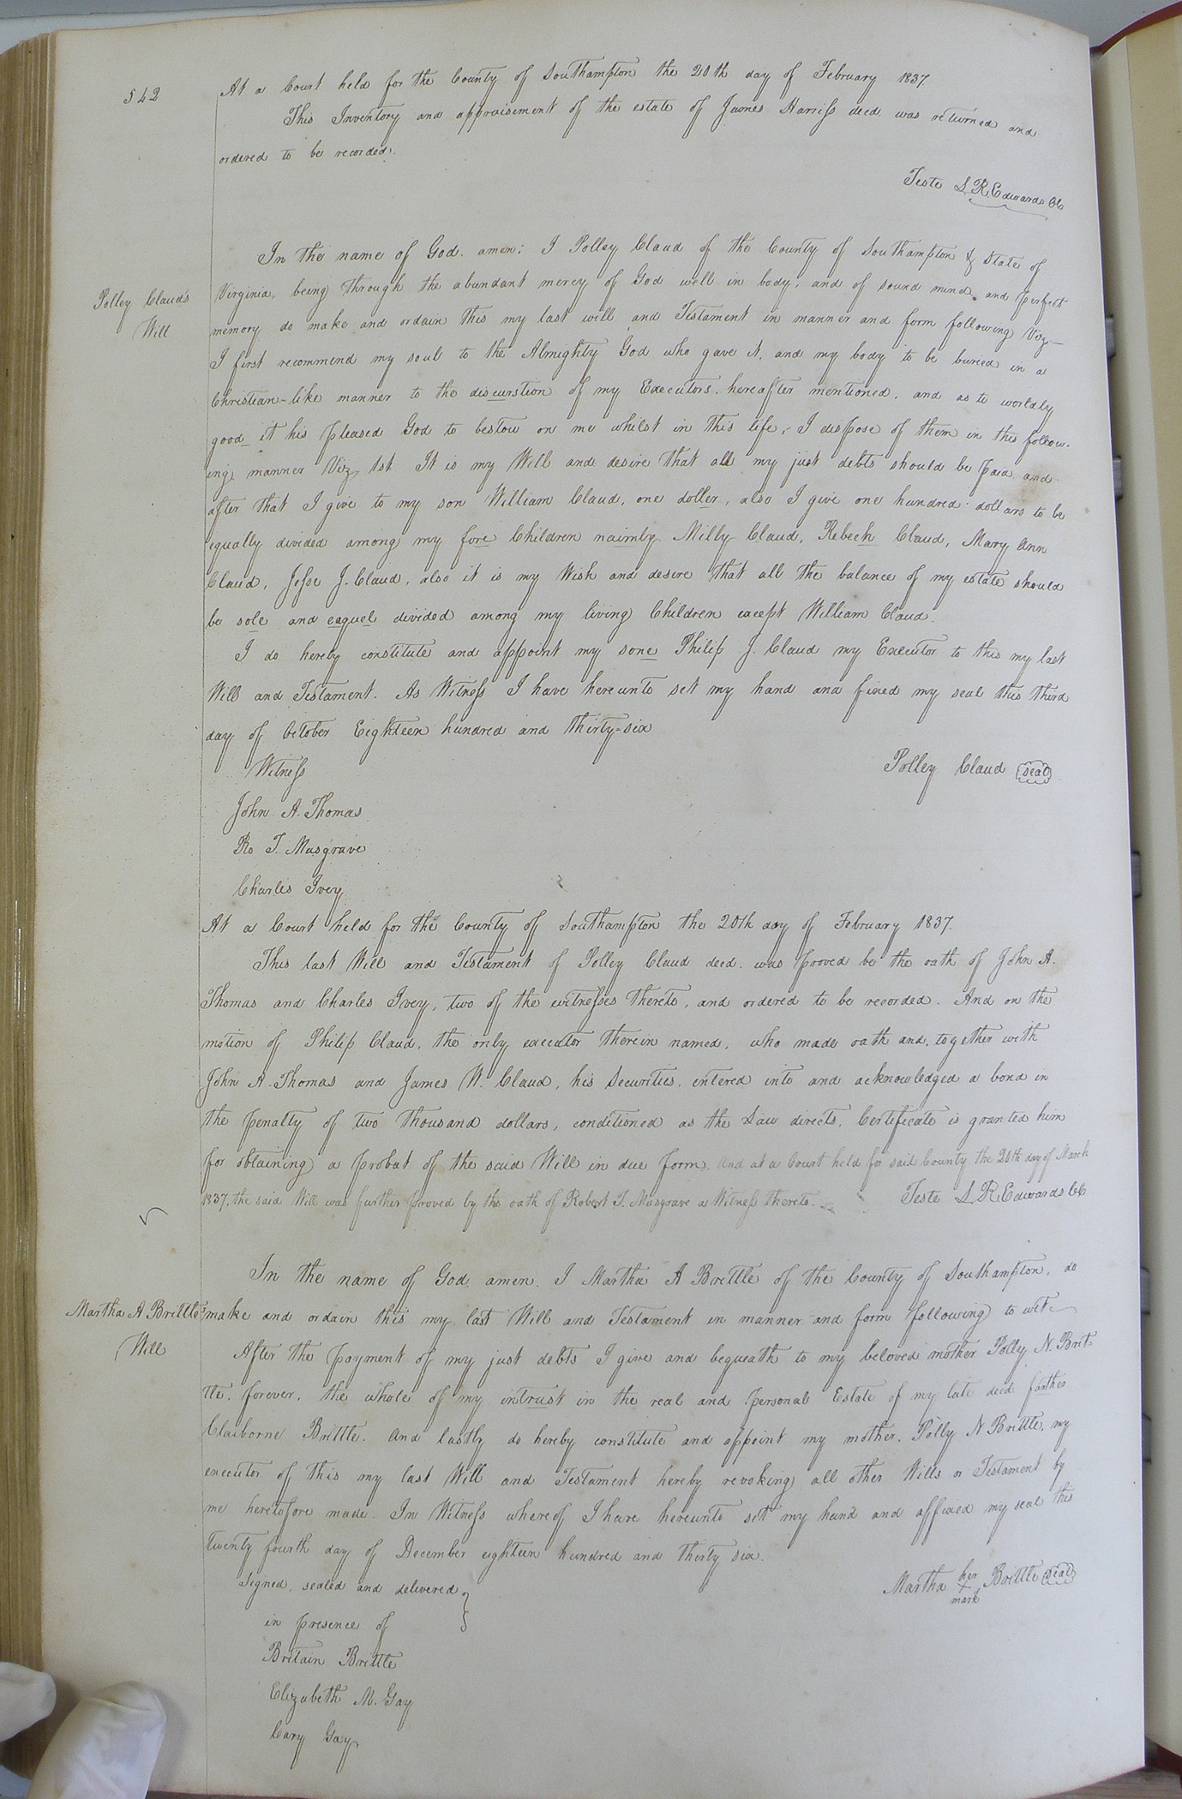 542
At a Court held for the County of Southampton the 20th day of February 1837
This Inventory and appraisement of the estate of James Harriss decd was returned and
ordered to be recorded.
Teste L. R. Edwards Cl.
Polley Clauds
Will
In the name of God. amen: I Polley Claud of the County of Southampton & State of
Virginia, being through the abundant mercy of God well in body, and of sound mind and perfect
memory do make and ordain this my last will and Testament in manner and form following Viz
I first recommend my soul to the Almighty God who gave it, and my body to be buried in a
Christian-like manner to the discurstion of my Executors, hereafter mentioned, and as to worldly
good it his pleased God to bestow on me whilst in this life, I dispose of them in this follow-
ing manner Viz 1st It is my Will and desire that all my just debts should be paid, and
after that I give to my son William Claud, one doller, also I give one hundred dollars to be
equally divided among my fore Children naimly Milly Claud, Rebeck Claud, Mary Ann
Claud, Jesse J. Claud, also it is my Wish and desire that all the balance of my estate should
be sole and eaquel divided among my living Children except William Claud.
I do hereby constitute and appoint my sone Philip J. Claud my Executor to this my last
Will and Testament. As Witness I have hereunto set my hand and fixed my seal this third
day of October Eighteen hundred and thirty-six
Witness
Polley Claud seal
John A. Thomas
Ro T. Musgrave
Charles Ivey
At a Court held for the County of Southampton the 20th day of February 1837.
This last Will and Testament of Polley Claud decd. was proved be the oath of John A.
Thomas and Charles Ivey, two of the witnesses thereto, and ordered to be recorded. And on the
motion of Philip Claud, the only executor therein named, who made oath and, together with
John A. Thomas and James W. Claud, his Securities, entered into and acknowledged a bond in
the penalty of two thousand dollars, conditioned as the Law directs, Certificate is granted him
for obtaining a probat of the said Will in due form. And at a Court held for said County the 20th day of March
1837, the said Will was further proved by the oath of Robert T. Musgrave a Witness thereto. Teste L. R. Edwards Cl.
In the name of God, amen. I Martha A Brittle of the County of Southampton, do
Martha A Brittle's make and ordain this my last Will and Testament in manner and form following to wit
Will
After the payment of my just debts I give and bequeath to my beloved mother Polly N. Brit
tle, forever, the whole of my intrust in the real and personal Estate of my late decd farther
Claiborne Brittle. And lastly do hereby constitute and appoint my mother, Polly N Brittle, my
executor of this my last Will and Testament hereby revoking all other Wills or Testament by
me heretofore made. In Witness whereof I have hereunto set my hand and affixed my seal this
twenty fourth day of December eighteen hundred and thirty six.
Signed, sealed and delivered
Martha her + mark Brittle seal
in presence of
Britain Brittle
Elizabeth M. Gay
Cary Gay